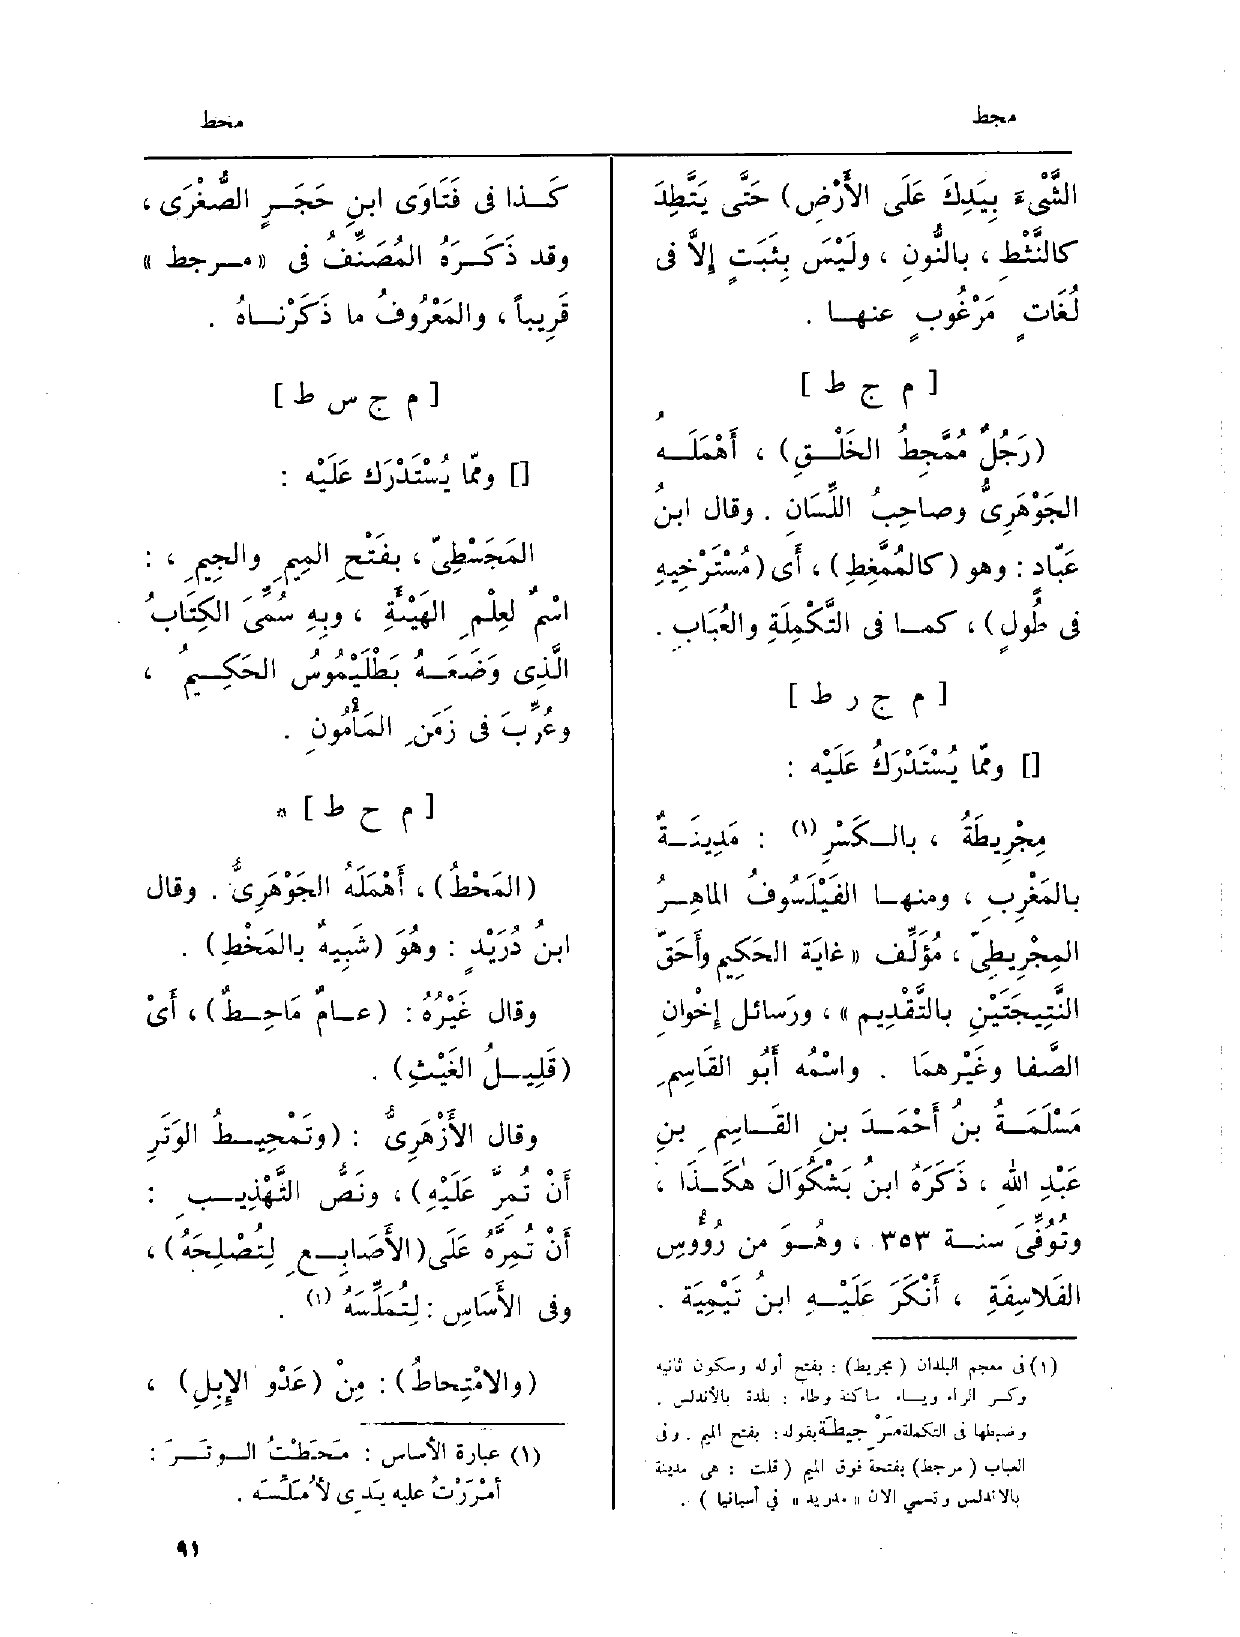 مجط
محط
الشَّيْءَ بِيَدِكَ عَلَى الأَرْضِ) حَتَّى يَتَّطِدَ
كالنَّثْطِ ، بالنُّونِ ، ولَيْسَ بِثَبَتٍ إلاَّ فى
لُغَاتٍ مَرْغُوبٍ عنهـا .
[ م ج ط ]
(رَجُلٌ مُمَّجِطُ الخَلْـقِ) ، أَهْمَلَـهُ
الجَوْهَرِىُّ وصاحِبُ اللِّسَان . وقال ابنُ
عَبّادٍ : وهو (كالمُمَّغِطِ) ، أَى (مُسْتَرْخِيهِ
فى طُولٍ) ، كمـا فى التَّكْمِلَةِ والعُبَابِ .
[ م ج ر ط ]
[] وممّا يُسْتَدْرَكُ عَلَيْه :
مِجْرِيطَةُ ، بالـكَسْرِ (١) : مَدِينَـةٌ
بالمَغْرِبِ ، ومنهـا الفَيْلَسُوفُ الماهِـرُ
المِجْرِيطِىّ ، مُؤَلِّف « غايَة الحَكِيمِ وأَحَقّ
النَّتِيجَتَيْنِ بالتَّقْدِيمِ » ، ورَسائل إِخْوانِ
الصَّفا وغَيْرهمَا . واسْمُه أَبُو القَاسِمِ
مَسْلَمَـةُ بنُ أَحْمَـدَ بنِ القَـاسِمِ بنِ
عَبْدِ اللهِ ، ذَكَرَهُ ابنُ بَشْكُوَالَ هكَـذَا ،
وتُوُفِّىَ سنـة ٣٥٣ ، وهُـوَ من رُؤُوسِ
الفَلاسِفَةِ ، أَنْكَرَ عَلَيْـهِ ابنُ تَيْمِيَة .
(١) فى معجم البلدان ( مجريط) : بفتح أوله وسكون ثانيه
وكسر الراء ويـاء ساكنة وطاء : بلدة بالأندلس .
وضبطها فى التكملة مَرْجِيطَة بقوله : بفتح الميم . وفى
العباب ( مرجط) بفتحة فوق الميم ( قلت : هى مدينة
بالاندلس وتسمي الان « مدريد » في أسبانيا ) .
كَـذا فى فَتَاوَى ابنِ حَجَـرٍ الصُّغْرَى ،
وقد ذَكَـرَهُ المُصَنِّفُ فى « مـرجط »
قَرِيباً ، والمَعْرُوفُ ما ذَكَرْنـاهُ .
[ م ج س ط ]
[] وممّا يُسْتَدْرَك عَلَيْه :
المَجَسْطِىّ ، بفَتْحِ الميمِ والجِيمِ ، :
اسْمٌ لعِلْمِ الهَيْئَةِ ، وبِهِ سُمِّىَ الكِتَابُ
الَّذِى وَضَعَـهُ بَطْلَيْمُوسُ الحَكِـيمُ ،
وعُرِّبَ فى زَمَنِ المَأْمُونِ .
[ م ح ط ] *
(المَحْطُ) ، أَهْمَلَهُ الجَوْهَرِىُّ . وقال
ابنُ دُرَيْدٍ : وهُوَ (شَبِيهٌ بالمَخْطِ) .
وقال غَيْرُهُ : (عـامٌ مَاحِـطٌ) ، أَىْ
(قَلِيـلُ الغَيْثِ) .
وقال الأَزْهَرِىُّ : (وتَمْحِيـطُ الوَتَرِ
أَنْ تُمِرَّ عَلَيْهِ) ، ونَصُّ التَّهْذِيـبِ :
أَنْ تُمِرَّهُ عَلَى (الأَصَابِـعِ لِتُصْلِحَهُ) ،
وفى الأَسَاسِ : لِتُمَلِّسَهُ (١) .
(والامْتِحاطُ) : مِنْ (عَدْوِ الإِبِلِ) ،
(١) عبارة الأساس : مَـحَطْـتُ الـوتَـرَ :
أمْرَرْتُ عليه يَدِى لأُمَلِّسَـه .
٩١